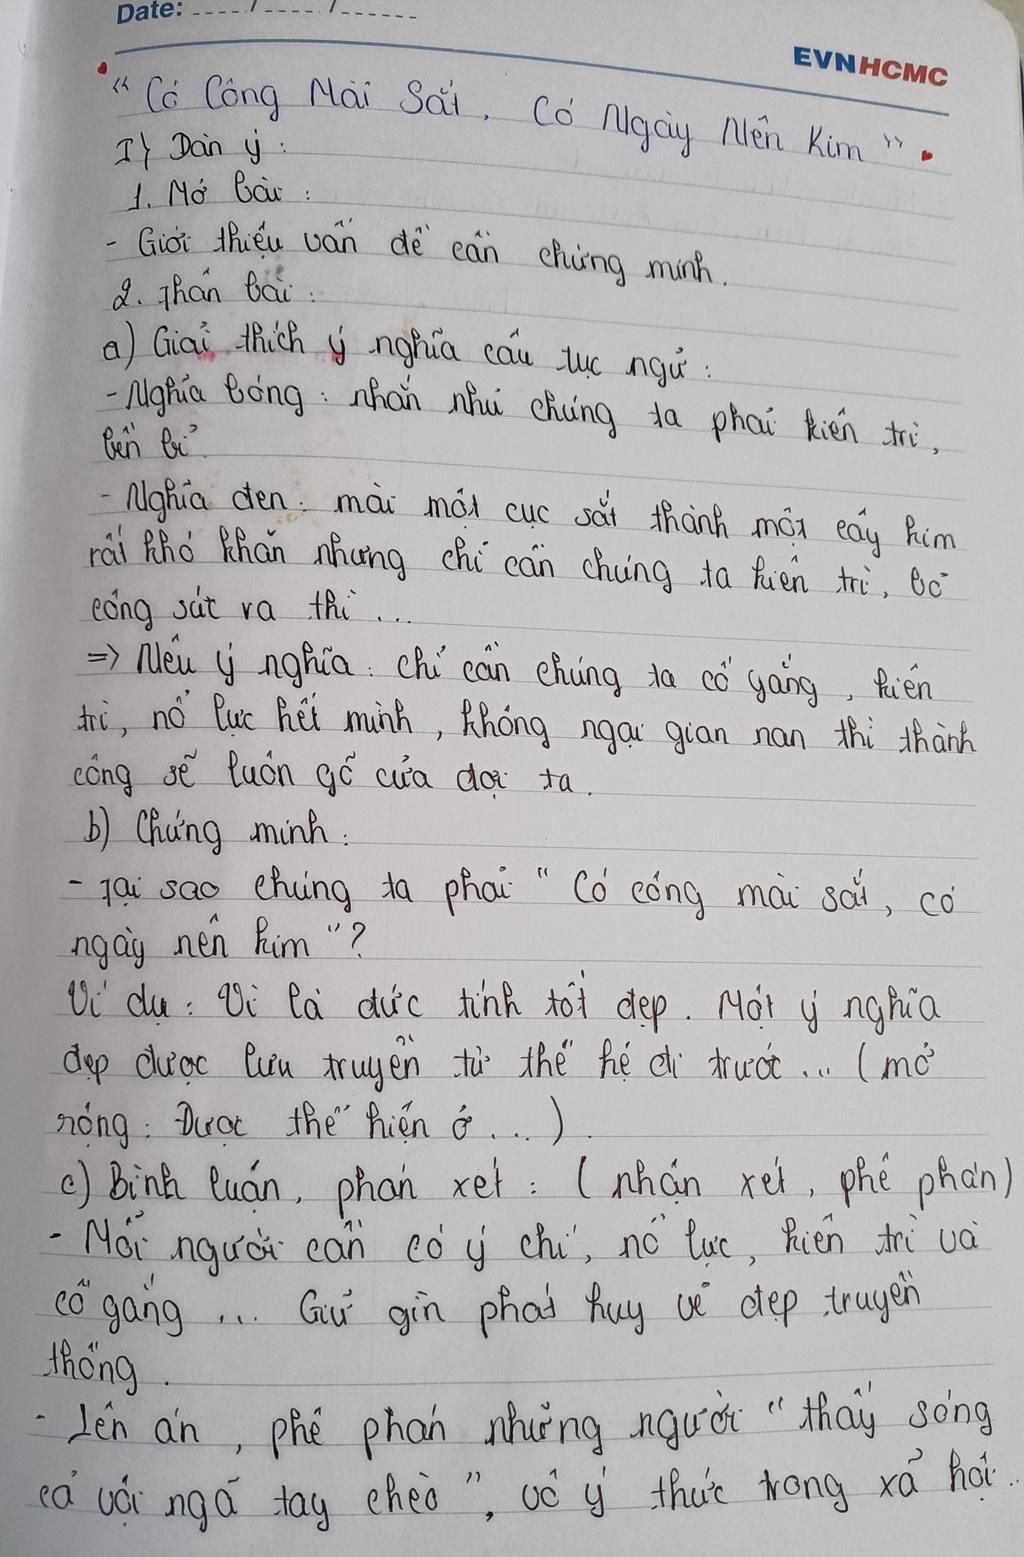 Date: ..../..../......
EVNHCMC
"Có Công Mài Sắt, Có Ngày Nên Kim".
I) Dàn ý:
1. Mở bài:
- Giới thiệu vấn đề cần chứng minh.
2. Thân bài:
a) Giải thích ý nghĩa câu tục ngữ:
- Nghĩa bóng: nhắn nhủ chúng ta phải kiên trì,
bền bỉ.
- Nghĩa đen: mài một cục sắt thành một cây kim
rất khó khăn nhưng chỉ cần chúng ta kiên trì, bỏ
công sức ra thì ...
=> Nêu ý nghĩa: chỉ cần chúng ta cố gắng, kiên
trì, nổ lực hết mình, không ngại gian nan thì thành
công sẽ luôn gõ cửa đợi ta.
b) Chứng minh:
- Tại sao chúng ta phải "Có công mài sắt, có
ngày nên kim"?
Ví dụ: Vì là đức tính tốt đẹp. Một ý nghĩa
đẹp được lưu truyền từ thế hệ đi trước ... (mở
rộng: Được thể hiện ở ...).
c) Bình luận, phán xét: (nhận xét, phê phán)
- Mỗi người cần có ý chí, nổ lực, kiên trì và
cố gắng ... Giữ gìn phát huy vẻ đẹp truyền
thống.
- Lên án, phê phán những người "thấy sóng
cả vội ngã tay chèo", vô ý thức trong xã hội...